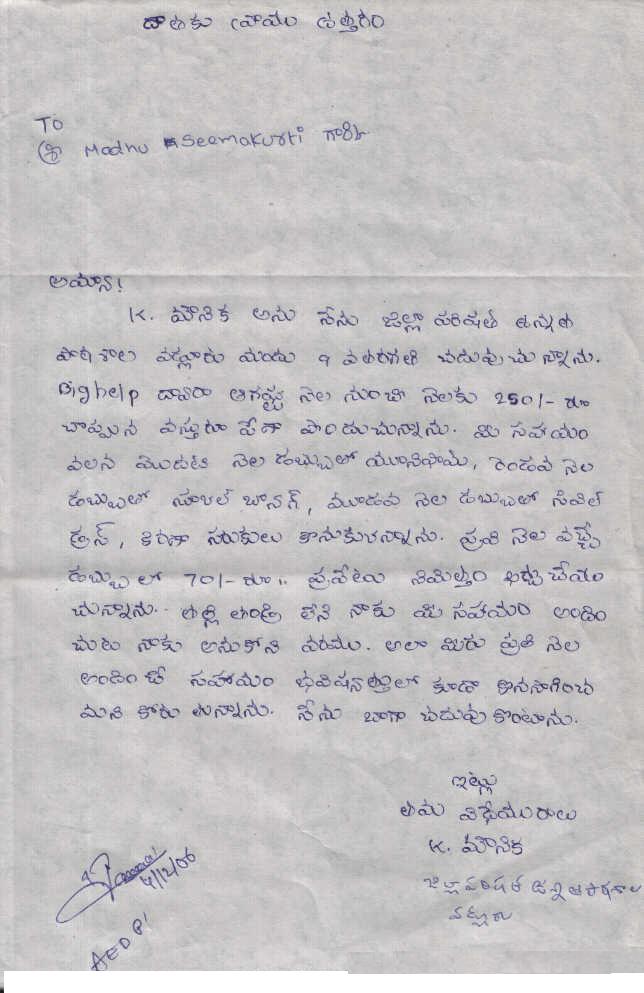 దాతకు వ్రాయు ఉత్తరం
To
శ్రీ Madhu Seemakurti గారికి
అయ్యా!
K. మౌనిక అను నేను జిల్లా పరిషత్ ఉన్నత
పాఠశాల వట్లూరు నందు 9 వ తరగతి చదువుచున్నాను.
Bighelp ద్వారా ఆగష్టు నెల నుంచి నెలకు 250/- రూ
చొప్పున వస్తు రూపేణా పొందుచున్నాను. మీ సహాయం
వలన మొదటి నెల డబ్బులో యూనిఫామ్, రెండవ నెల
డబ్బులో స్కూల్ బ్యాగ్, మూడవ నెల డబ్బులో సివిల్
డ్రస్, కిరాణా సరుకులు కొనుకున్నాను. ప్రతి నెల వచ్చే
డబ్బులో 70/- రూ.. ప్రవేటు నిమిత్తం ఖర్చు చేయు
చున్నాను. తల్లి తండ్రి లేని నాకు మీ సహాయం అందిం
చుట నాకు అనుకోని వరము. అలా మీరు ప్రతి నెల
అందించే సహాయం భవిష్యత్తులో కూడా కొనసాగించ
మని కోరుతున్నాను. నేను బాగా చదువుకొంటాను.
ఇట్లు
తమ విధేయురాలు
K. మౌనిక
జిల్లా పరిషత్ ఉన్నత పాఠశాల
వట్లూరు
4/12/06
AEDP!